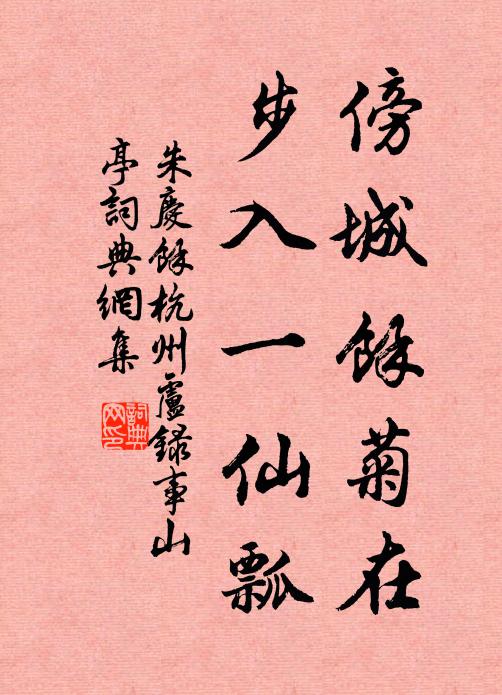 傍城餘菊在
步入一仙瓢
朱慶餘杭州盧録事山
亭詞典網集
詞典网印